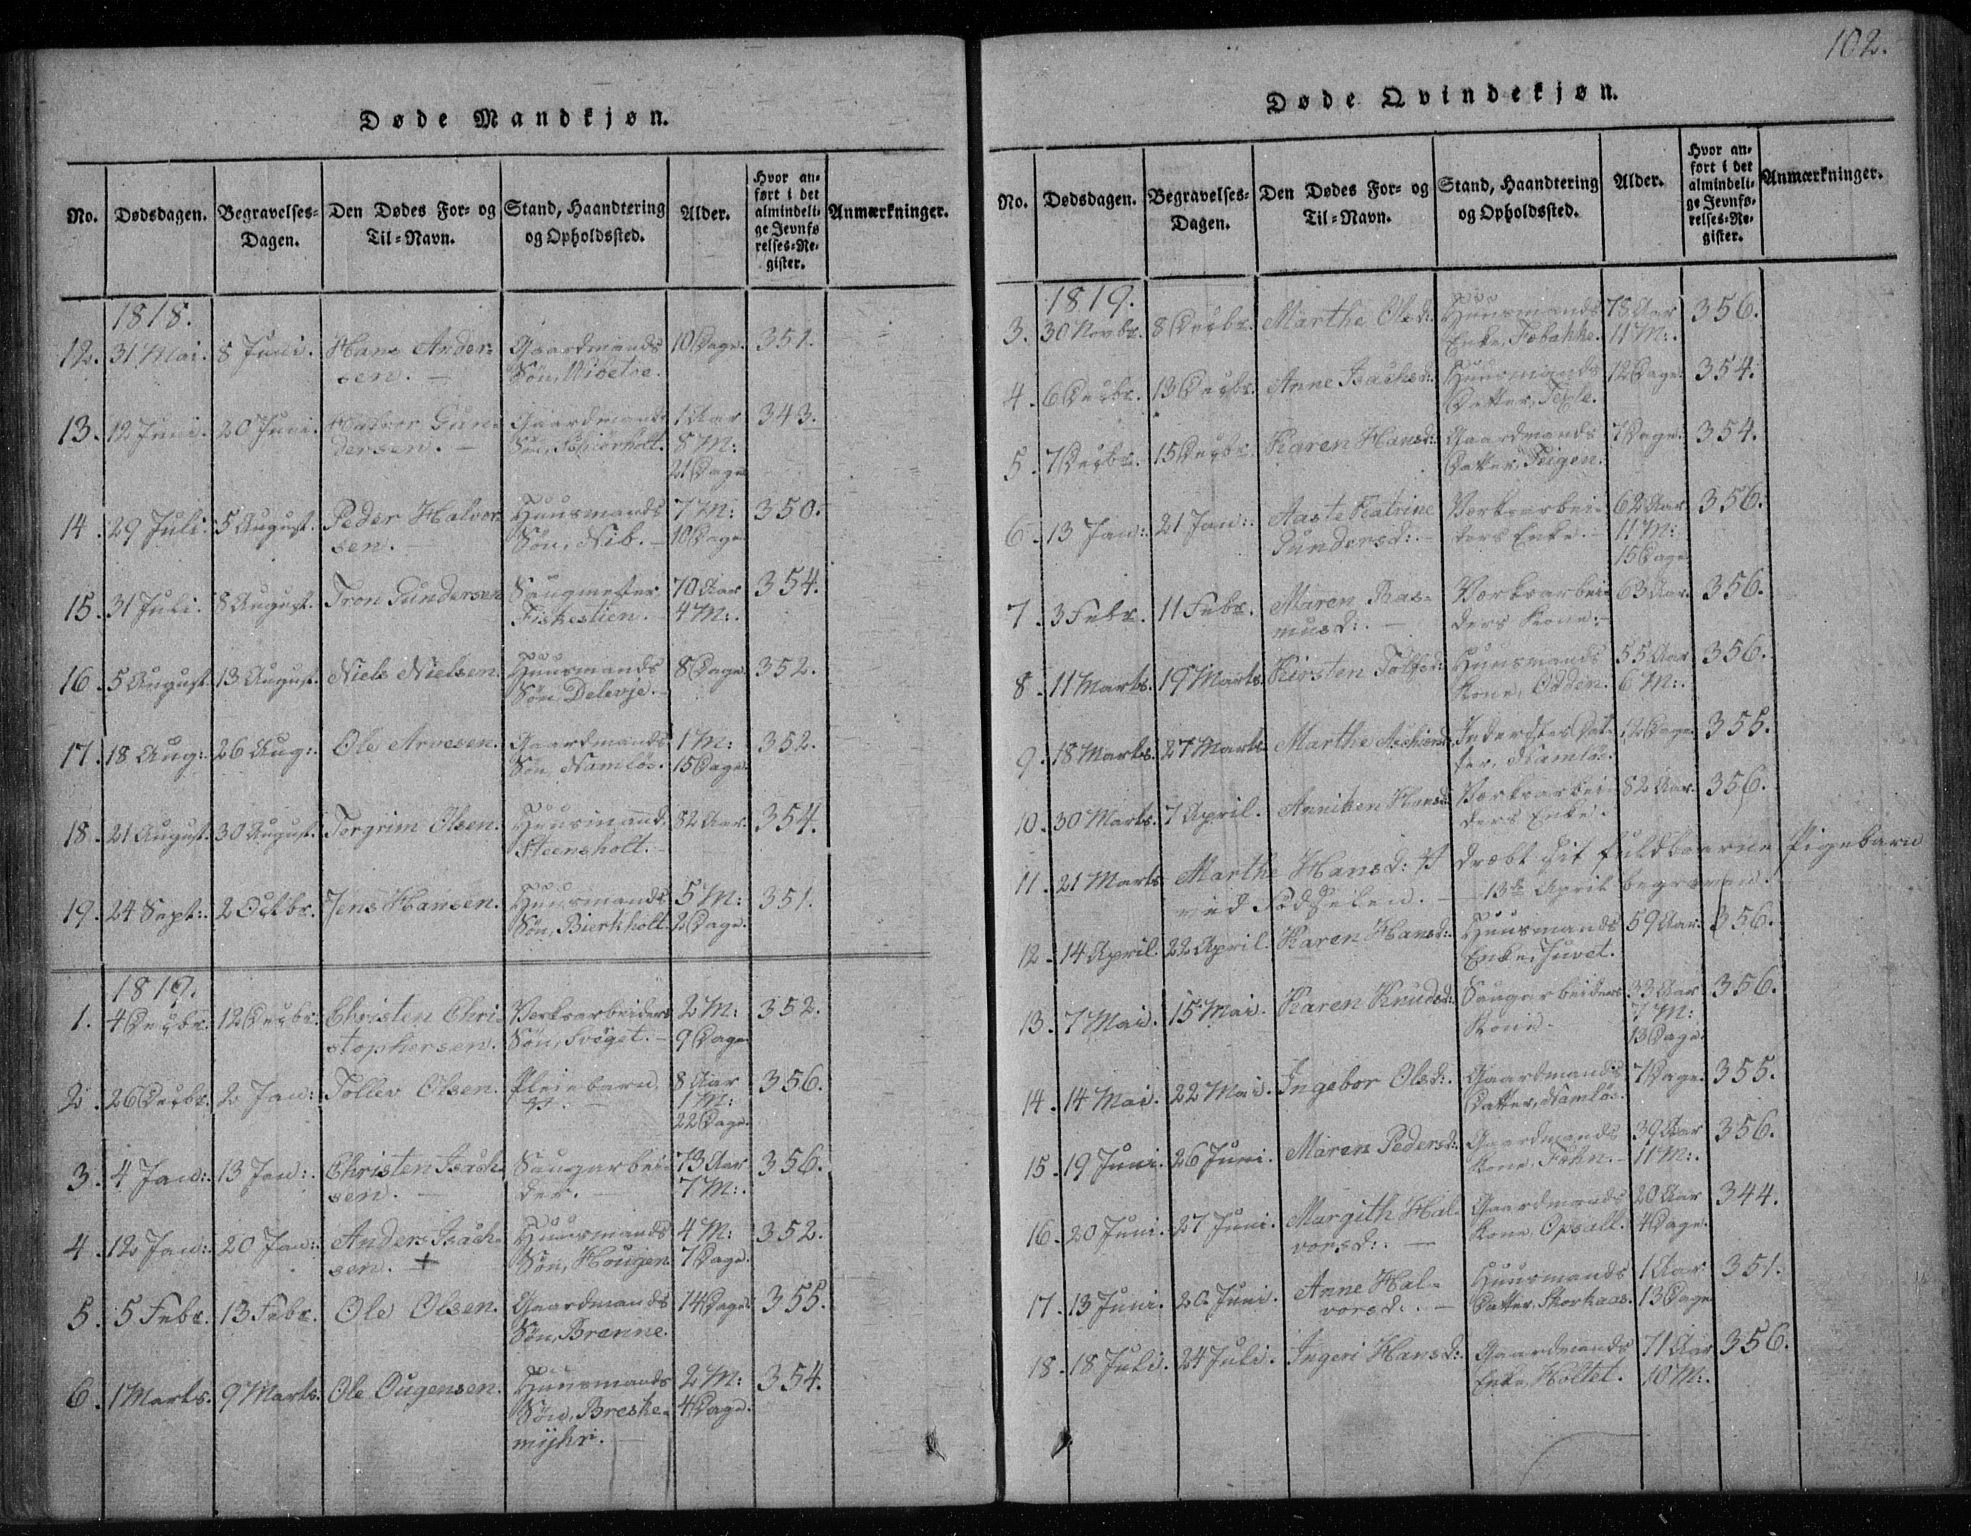 102.
Døde Mandkjøn.
No. Dødsdagen. Begravelses-Dagen. Den Dødes For- og Til-Navn. Stand, Haandtering og Opholdssted. Alder. Hvor anført i det almindelige Jevnførelses-Register. Anmærkninger.
1818.
12. 31 Mai. 8 Juni. Hans Ander- Gaardmands 10 Dage. 351.
sen. Søn,
13. 12 Juni. 20 Juni. Halvor Gun- Gaardmands 1 Aar 343.
dersen. Søn, 8 M:
21 Dage
14. 29 Juli. 5 August. Peder Halvor- Huusmands 7 M: 350.
sen. Søn, Nib. 10 Dage
15. 31 Juli. 8 August. Tron Gundersen Saugmester 70 Aar 354.
Fiskestien. 4 M:.
16. 5 August. 13 August. Niels Nielsen. Huusmands 8 Dage. 352.
Søn, Delevje.
17. 18 Aug:. 26 Aug:. Ole Arvesen. Gaardmands 1 M: 352.
Søn, Namløs. 15 Dage.
18. 21 August. 30 August. Torgrim Olsen. Huusmand, 82 Aar. 354.
Steensholt.
19. 24 Sept:. 2 Octbr. Jens Hansen. Huusmands 5 M: 351.
Søn, Bierkholt. 2 Dage.
1819.
1. 4 Decbr. 12 Decbr. Christen Chri- Verksarbeiders 2 M: 352.
stophersen. Søn, 9 Dage
2. 26 Decbr. 2 Jan: Tollev Olsen. Pleiebarn 8 Aar 356.
1 M:
22 Dage.
3. 4 Jan:. 13 Jan:. Christen Isach- Saugarbei- 73 Aar 356.
sen. der. 7 M:.
4. 12 Jan:. 20 Jan:. Anders Isach- Huusmands 4 M: 352.
sen. + Søn, Hougen 7 Dage.
5. 5 Febr. 13 Febr. Ole Olsen. Gaardmands 14 Dage. 355.
Søn, Brenne.
6. 1 Marts. 9 Marts. Ole Ougensen. Huusmands 2 M: 354.
Søn, Breske- 4 Dage.
myhr.
Døde Qvindekjøn.
No. Dødsdagen. Begravelses-Dagen. Den Dødes For- og Til-Navn. Stand, Haandtering og Opholdssted. Alder. Hvor anført i det almindelige Jevnførelses-Register. Anmærkninger.
1819.
3. 30 Novbr. 8 Decbr. Marthe Olsd: Huusmands 78 Aar 356.
Enke, 11 M:.
4. 6 Decbr. 13 Decbr. Anne Isachsd:. Huusmands 12 Dage. 354.
Datter,
5. 7 Decbr. 15 Decbr. Karen Hansd: Gaardmands 7 Dage. 354.
Datter, Teigen.
6. 13 Jan:. 21 Jan:. Aaste Catrine Verksarbei- 62 Aar 356.
Gundersd:. ders Enke. 11 M:
15 Dage
7. 3 Febr. 11 Febr. Maren Ras- Verksarbei- 63 Aar. 356.
musd:. ders Kone.
8. 11 Marts. 19 Marts. Kirsten Tolfsd: Huusmands 55 Aar 356.
Kone, Odden. 6 M:.
9. 18 Marts. 27 Marts. Marthe Inderstes Dat- 12 Dage. 355.
ter, Namløs.
10. 30 Marts. 7 April. Anniken Hansd: Verksarbei- 82 Aar. 356.
ders Enke.
11. 21 Marts. Marthe Hansd: dræbt sit fuldbaarne Pigebarn
ved Fødselen. 13de April begraven.
12. 14 April. 22 April. Karen Hansd: Huusmands 59 Aar. 356.
Enke, Juvet.
13. 7 Mai. 15 Mai. Karen Knudsd: Saugarbeiders 33 Aar 356.
Kone. 7 M:
13 Dage.
14. 14 Mai. 22 Mai. Ingebor Olsd:. Gaardmands 7 Dage. 355.
Datter, Namløs.
15. 19 Juni. 26 Juni. Maren Pedersd: Gaardmands 39 Aar 356.
Kone, Fehn. 11 M:.
16. 20 Juni. 27 Juni. Margith Hal- Gaardmands 20 Aar 344.
vorsd:. Kone, Opsall. 4 Dage.
17. 13 Juni. 20 Juni. Anne Hal- Huusmands 1 Aar 351.
vorsd:. Datter, 13 Dage
18. 18 Juli. 24 Juli. Ingeri Hansd: Gaardmands 71 Aar 356.
Enke, Holtet. 10 M:.